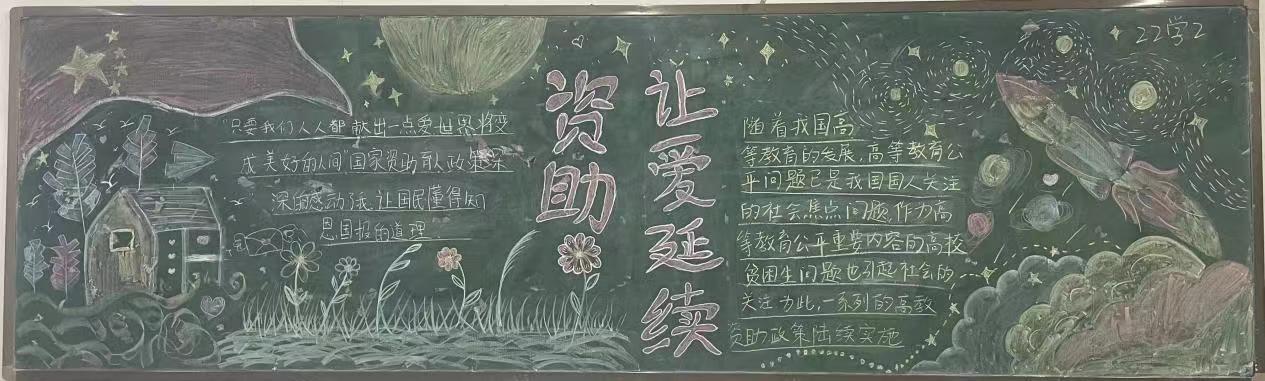 22学2
资助
让爱延续
"只要我们人人都献出一点爱世界将变
成美好的人间"国家资助政策深
深的感动了我,让国民懂得知
恩国报的道理.
随着我国高
等教育的发展,高等教育公
平问题已是我国国人关注
的社会焦点问题,作为高
等教育公平重要内容的高校
贫困生问题也引起社会的
关注为此,一系列的高教
资助政策陆续实施